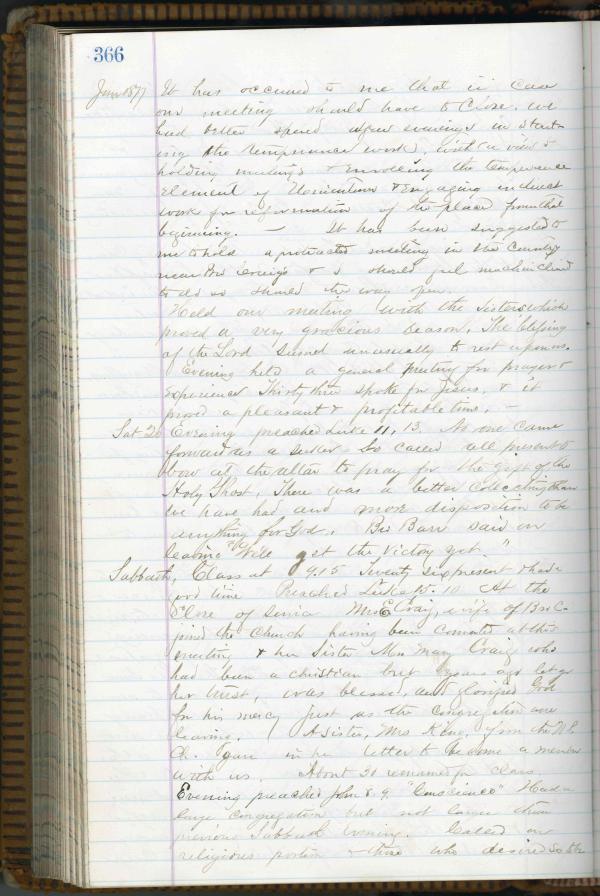 366
Jan 1877 It has occurred to me that in case
our meeting should have to close. we
had better spend a few evenings in start-
ing the temperance work, with a view to
holding meetings & enrolling the temperance
element of & engaging in direct
work for reformation of the place from that
beginning. — It has been suggested to
me to hold a protracted meeting in the Country
near Bro & I should feel much inclined
to do so should the way open.
Held our meeting with the Sisters which
proved a very gracious season. The blessing
of the Lord seemed unusually to rest upon us.
Evening held a general meeting for prayer &
experience Thirty three spoke for Jesus, & it
proved a pleasant & profitable time. —
Sat 20 Evening preached Luke 11, 13. No one came
forward as a seeker So called all present to
bow at the altar to pray for the gift of the
Holy Ghost. There was a better than
we have had and more disposition to do
anything for God. Bro Barr said on
leaving "We'll get the victory yet."
Sabbath, Class at 9.15 Twenty six present & had a
good time Preached Luke 10 At the
close of service Mrs E Craig, wife of Bro C-
joined the church having been converted at this
meeting & her Sister Mrs Mary Craig who
had been a christian but years ago let go
her trust, was blessed, and glorified God
for his mercy just as the congregation were
leaving. A sister, Mrs King, from the
Ch. gave in her letter to become a member
with us. About 30 remained for class
Evening preached John 8.9. "Conscience" Had a
large congregation but not larger than
previous Sabbath evening. Called our
religious portion & those who desired to be